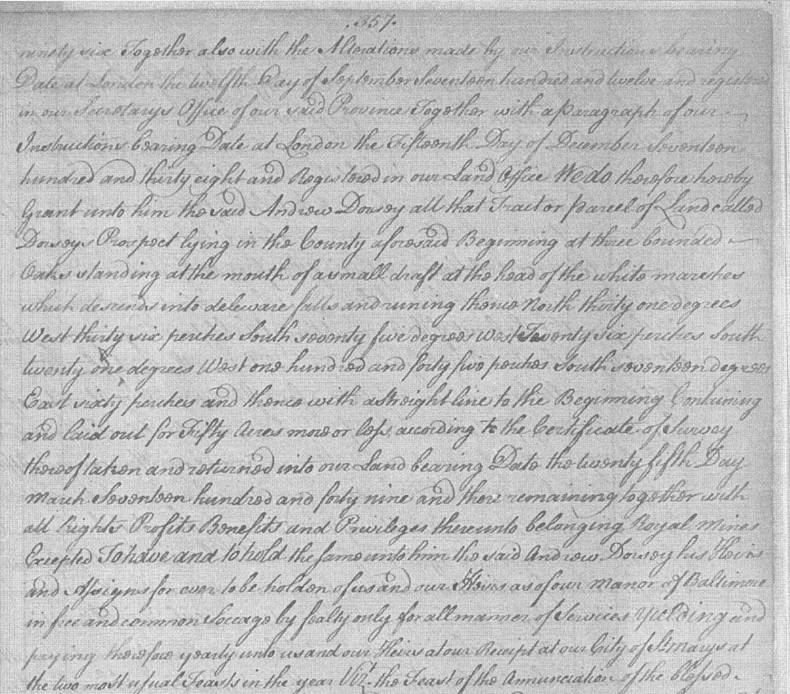 .357.
ninety six Together also with the Alterations made by our Instructions bearing
Date at London the twelfth Day of September Seventeen hundred and twelve and registered
in our Secretarys Office of our said Province Together with a Paragraph of our
Instructions bearing Date at London the Fifteenth Day of December Seventeen
hundred and thirty eight and Registered in our Land Office We do therefore hereby
Grant unto him the said Andrew Dorsey all that Tract or parcel of Land called
Dorseys Prospect lying in the County aforesaid Beginning at three bounded
Oaks standing at the mouth of a small draft at the head of the white marshes
which descends into deleware falls and runing thence North thirty one degrees
West thirty six perches South seventy five degrees West Twenty six perches South
twenty one degrees West one hundred and forty five perches South seventeen degrees
East sixty perches and thence with a streight line to the Beginning Containing
and laid out for Fifty Acres more or less according to the Certificate of Survey
thereof taken and returned into our Land bearing Date the twenty fifth Day
March Seventeen hundred and forty nine and there remaining together with
all Rights Profits Benefits and Privileges thereunto belonging Royal mines
Excepted To have and to hold the same unto him the said Andrew Dorsey his Heirs
and Assigns for ever to be holden of us and our Heirs as of our Manor of Baltimore
in free and common Soccage by fealty only for all manner of Services Yielding and
paying therefore yearly unto us and our Heirs at our Receipt at our City of St. Marys at
the two most usual Feasts in the year Vizt. the Feast of the Annunciation of the blessed